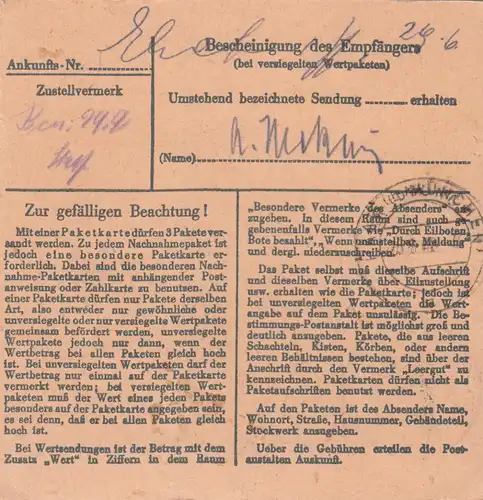 26.6.
Bescheinigung des Empfängers
Ankunfts-Nr.
(bei versiegelten Wertpaketen)
Zustellvermerk
Umstehend bezeichnete Sendung erhalten
(Name)
Zur gefälligen Beachtung!
Mit einer Paketkarte dürfen 3 Pakete ver-
sandt werden. Zu jedem Nachnahmepaket ist
jedoch eine besondere Paketkarte er-
forderlich. Dabei sind die besonderen Nach-
nahme-Paketkarten mit anhängender Post-
anweisung oder Zahlkarte zu benutzen. Auf
einer Paketkarte dürfen nur Pakete derselben
Art, also entweder nur gewöhnliche oder
unversiegelte oder nur versiegelte Wertpakete
gemeinsam befördert werden, unversiegelte
Wertpakete jedoch nur dann, wenn der
Wertbetrag bei allen Paketen gleich hoch
ist. Bei unversiegelten Wertpaketen darf der
Wertbetrag nur einmal auf der Paketkarte
vermerkt werden; bei versiegelten Wert-
paketen muß der Wert eines jeden Pakets
besonders auf der Paketkarte angegeben sein,
es sei denn, daß er bei allen Paketen gleich
hoch ist.
Bei Wertsendungen ist der Betrag mit dem
Zusatz „Wert" in Ziffern in dem Raum
„Besondere Vermerke des Absenders" an-
zugeben. In diesem Raum sind auch ge-
gebenenfalls Vermerke wie „Durch Eilboten,
Bote bezahlt", „Wenn unzustellbar, Meldung"
und dergl. niederzuschreiben.
Das Paket selbst muß dieselbe Aufschrift
und dieselben Vermerke über Eilzustellung
usw. erhalten wie die Paketkarte; jedoch ist
bei unversiegelten Wertpaketen die Wert-
angabe auf dem Paket unzulässig. Die Be-
stimmungs-Postanstalt ist möglichst groß und
deutlich anzugeben. Pakete, die aus leeren
Schachteln, Kisten, Körben, oder andern
leeren Behältnissen bestehen, sind über der
Anschrift durch den Vermerk „Leergut" zu
kennzeichnen. Paketkarten dürfen nicht als
Paketaufschriften benutzt werden.
Auf den Paketen ist des Absenders Name,
Wohnort, Straße, Hausnummer, Gebäudeteil,
Stockwerk anzugeben.
Ueber die Gebühren erteilen die Post-
anstalten Auskunft.